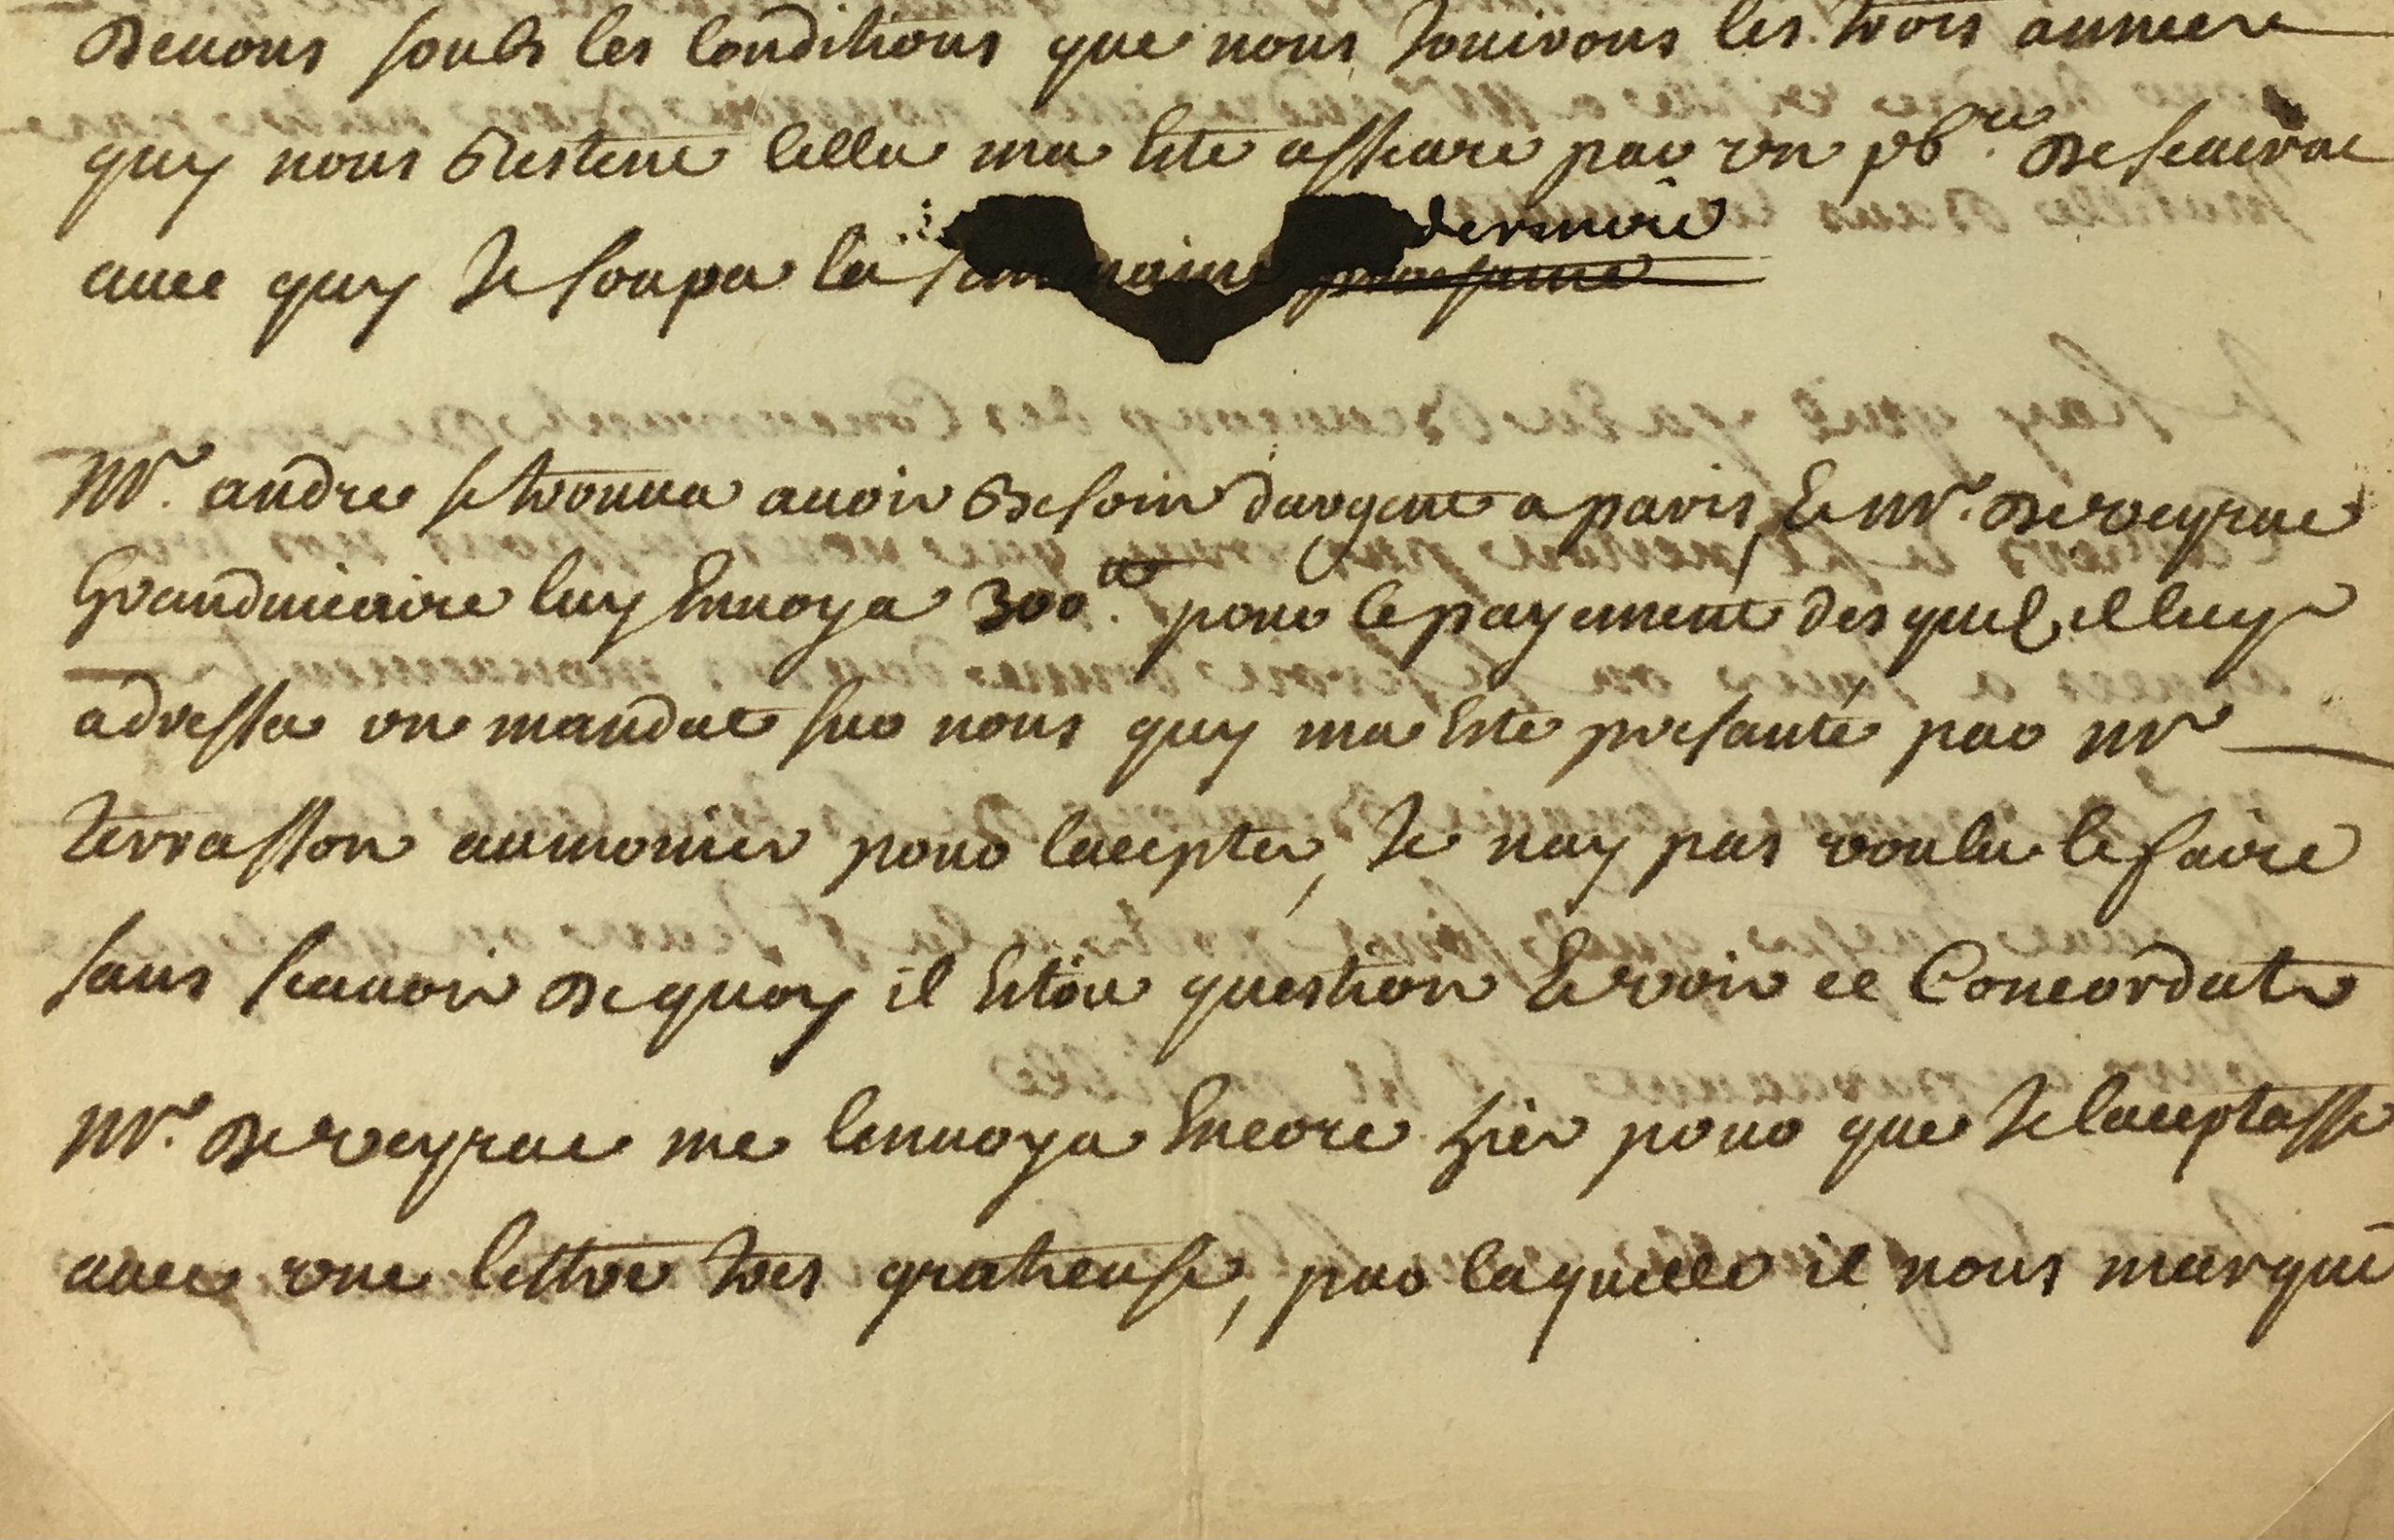 Devons soubs les Conditions que nous Jouirons les trois annees
quy nous Restent Cella ma Este assure par un pb.re De
avec quy Je soupa la semmaine derniere
Mr. andre se trouva avoir Besoin dargent a paris, Et Mr. De veyrac
Grandvicaire luy Envoya 300tt. pour le payement des quels il luy
adressa un mandat sur nous quy ma Este presanté par Mr
terrasson aumonier pour laccepter, Je nay pas voulu le faire
sans scavoir De quoy il Estoit question Et voir ce Concordat
Mr. De veyrac me lenvoya Encore hier pour que Je lacceptasse
avec une lettre tres gratieuse, par laquelle il nous marque